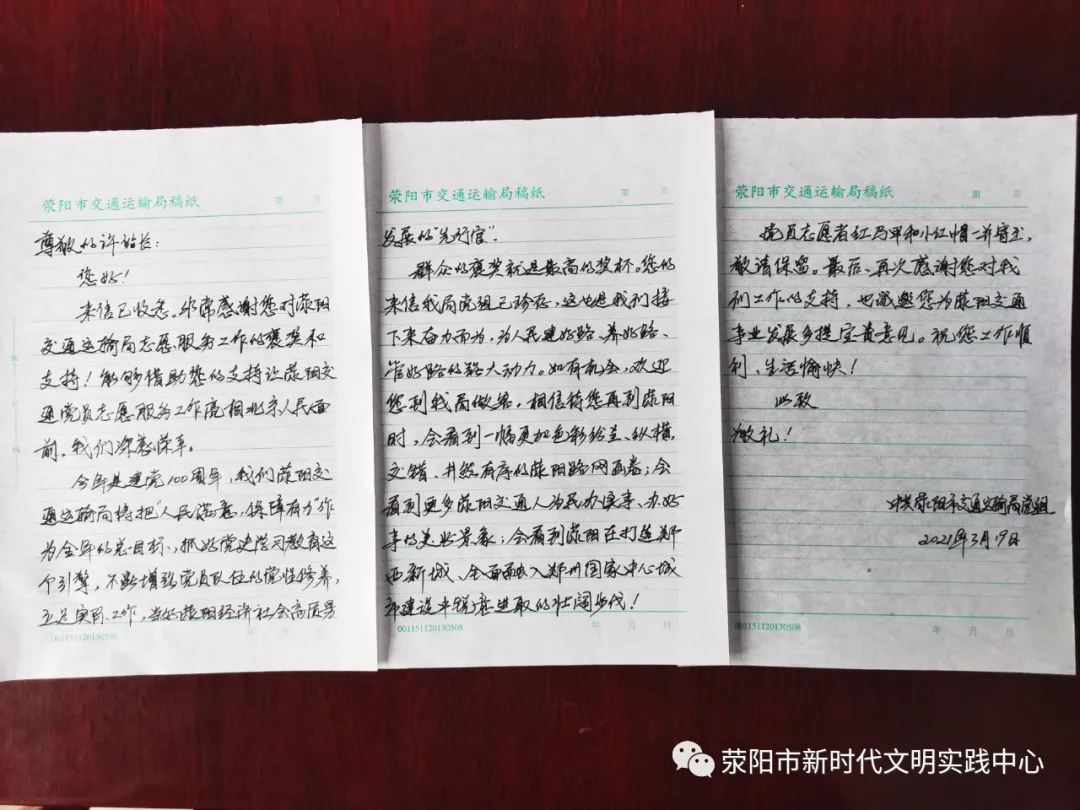 荥阳市交通运输局稿纸
第 页
尊敬的许站长：
您好！
来信已收悉，非常感谢您对荥阳
交通运输局志愿服务工作的褒奖和
支持！能够借助您的支持让荥阳交
通党员志愿服务工作亮相北京人民面
前，我们深感荣幸。
今年是建党100周年，我们荥阳交
通运输局将把"人民满意，保障有力"作
为全年的总目标，抓好党史学习教育这
个引擎，不断增强党员队伍的党性修养，
立足实际工作，当好荥阳经济社会高质量
001151120130508
年 月 日
荥阳市交通运输局稿纸
第 页
发展的"先行官"。
群众的褒奖就是最高的奖杯。您的
来信我局党组已珍存，这也是我们接
下来奋力而为，为人民建好路、养好路、
管好路的强大动力。如有机会，欢迎
您到我局做客，相信待您再到荥阳
时，会看到一幅更加色彩绘兰、纵横
交错、井然有序的荥阳路网画卷；会
看到更多荥阳交通人为民办实事、办好
事的美好景象；会看到荥阳在打造郑
西新城、全面融入郑州国家中心城
市建设中锐意进取的壮阔步伐！
001151120130508
年 月 日
荥阳市交通运输局稿纸
第 页
党员志愿者红马甲和小红帽一并寄上，
敬请保留。最后，再次感谢您对我
们工作的支持，也诚邀您为荥阳交通
事业发展多提宝贵意见。祝您工作顺
利、生活愉快！
此致
敬礼！
中共荥阳市交通运输局党组
2021年3月19日
001151120130508
年 月 日
荥阳市新时代文明实践中心